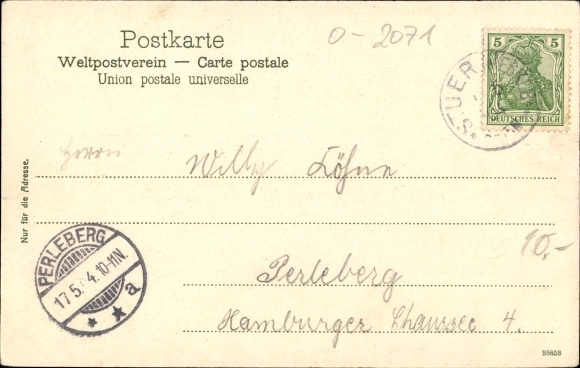 Postkarte
Weltpostverein — Carte postale
Union postale universelle
0-2071
5 5
DEUTSCHES REICH
STUER
Herrn Willy Köhne
Nur für die Adresse.
PERLEBERG
17.5. 4.10-11N.
* * a
10,-
Perleberg
Hamburger Chaussee 4.
95658